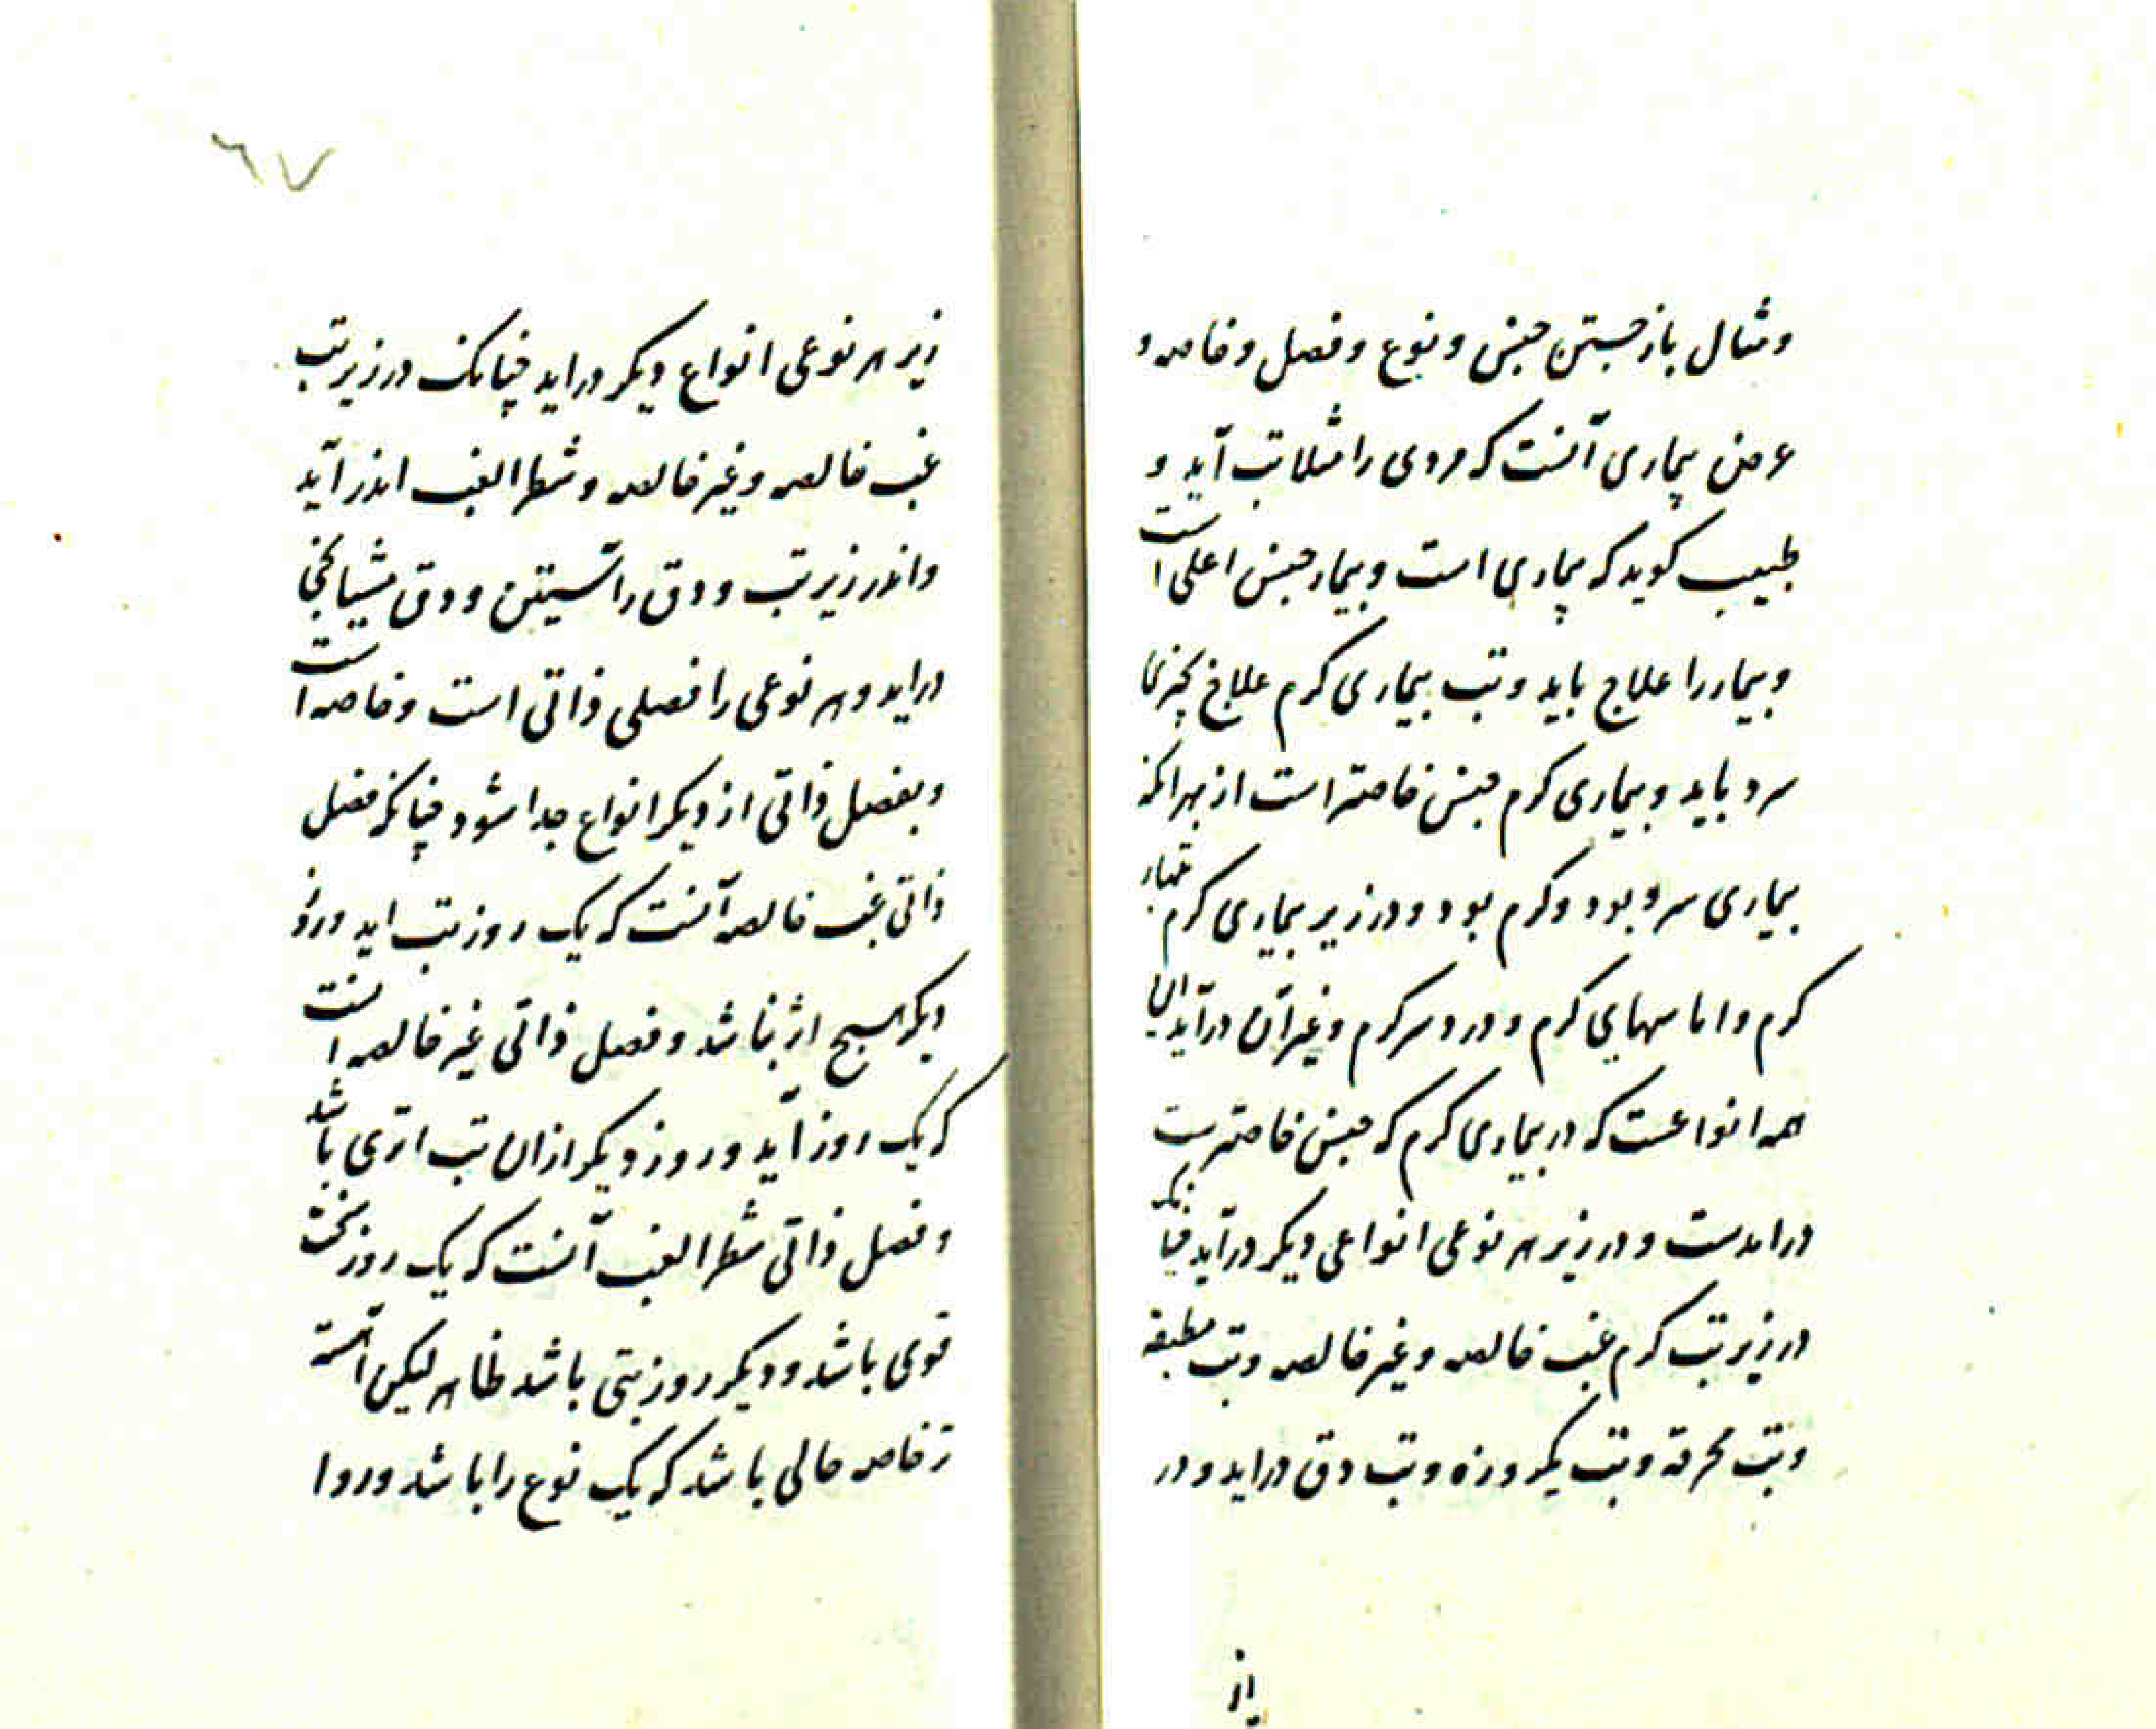 ومثال بازجستن جنس و نوع و فصل و خاصه و
عرض بیماری آنست که مردی را مثلا تب آید و
طبیب کوید که بیماری است و بیمار جنس اعلی است
و بیمار را علاج باید و تب بیماری کرم علاج بچیزها
سرد باید و بیماری کرم جنس خاصتر است از بهر انکه
بیماری سرد بود و کرم بود و در زیر بیماری کرم تبهاء
کرم و اماسهای کرم و درد سر کرم و غیر آن درآید این
همه انواعست که در بیماری کرم که جنس خاصترست
درامدست و در زیر هر نوعی انواعی دیکر درآید چنانکه
در زیر تب کرم غب خالصه و غیر خالصه و تب مطبقه
و تب محرقه و تب یکروزه و تب دق دراید و در
از
٦٧
زیر هر نوعی انواع دیکر دراید چنانک در زیر تب
غب خالصه و غیر خالصه و شطر الغب اندر آید
و اندر زیر تب و دق راستین و دق مشیایخی
دراید و هر نوعی را فصلی ذاتی است و خاصه است
و بفصل ذاتی از دیکر انواع جدا شود چنانکه فصل
ذاتی غب خالصه آنست که یک روز تب اید و روز
دیکر هیچ اثر نباشد و فصل ذاتی غیر خالصه انست
که یک روز آید و روز دیکر ازان تب اثری باشد
و فصل ذاتی شطر الغب آنست که یک روز سخت
قوی باشد و دیکر روز تبی باشد ظاهر لیکن آهسته
تر خاصه حالی باشد که یک نوع را باشد و روا